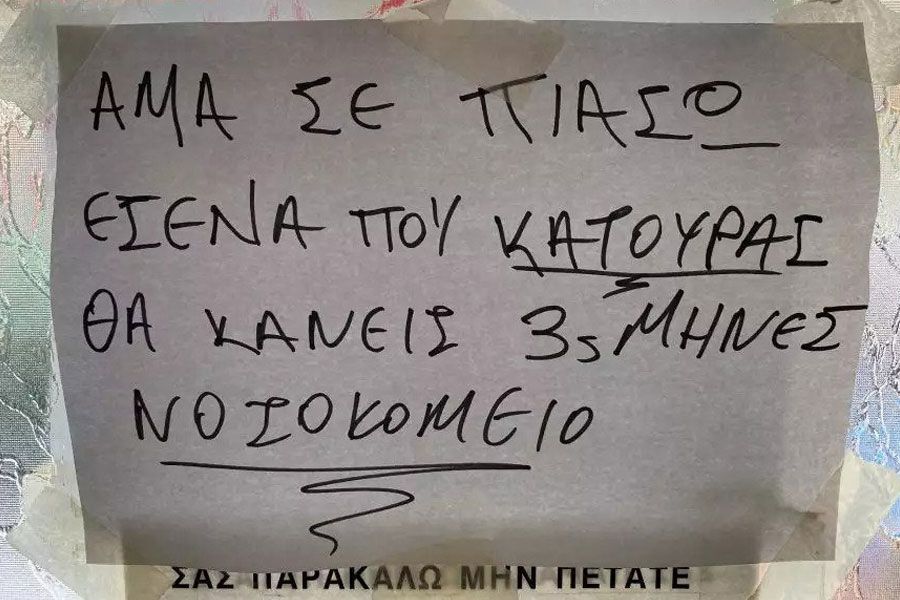 ΑΜΑ ΣΕ ΠΙΑΣΩ
ΕΣΕΝΑ ΠΟΥ ΚΑΤΟΥΡΑΣ
ΘΑ ΚΑΝΕΙΣ 3ς ΜΗΝΕΣ
ΝΟΣΟΚΟΜΕΙΟ
ΣΑΣ ΠΑΡΑΚΑΛΩ ΜΗΝ ΠΕΤΑΤΕ